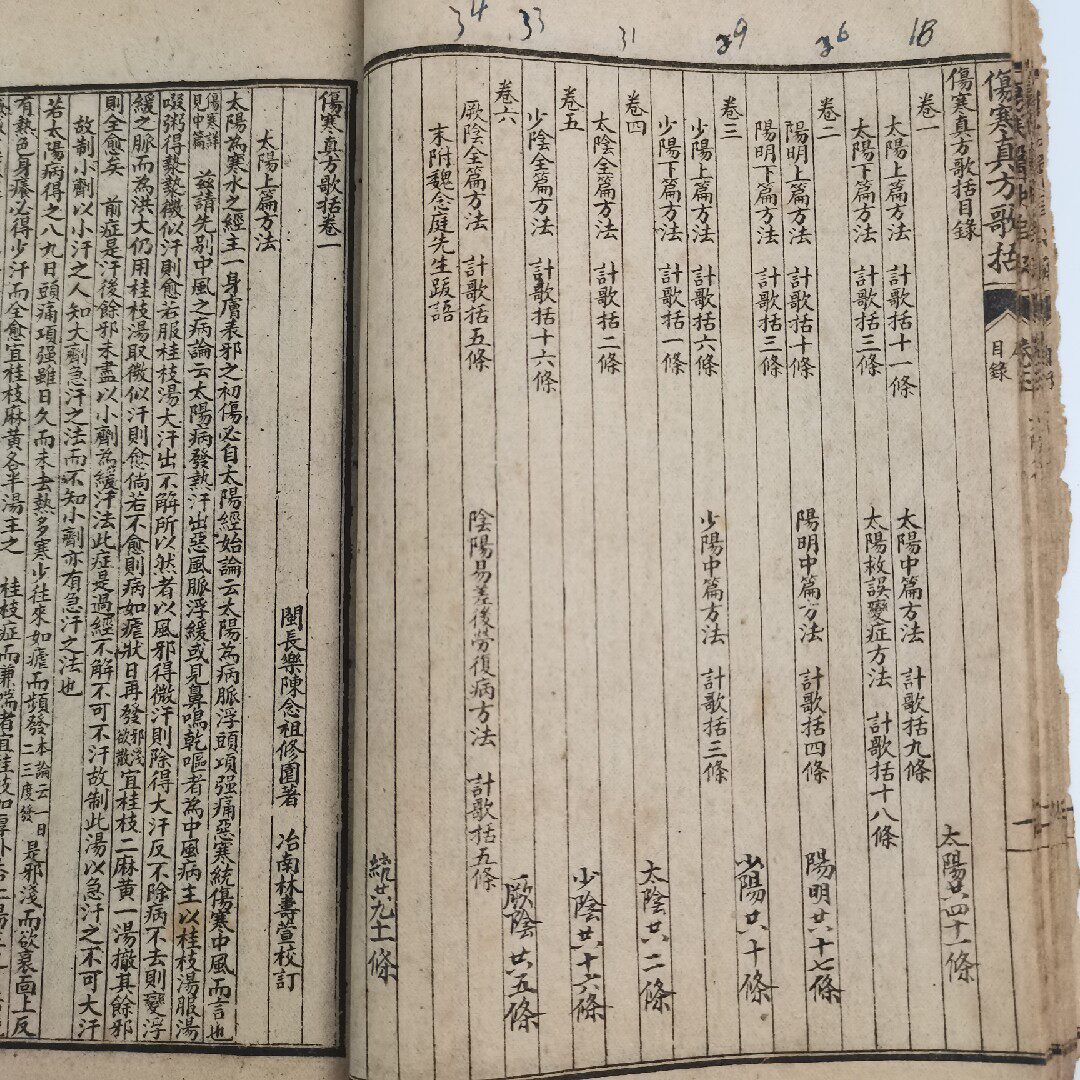 34 33 31 29 26 18
傷寒真方歌括 目錄
傷寒真方歌括目錄
卷一 太陽共四十一條
太陽上篇方法 計歌括十一條 太陽中篇方法 計歌括九條
太陽下篇方法 計歌括三條 太陽救誤變症方法 計歌括十八條
卷二 陽明共十七條
陽明上篇方法 計歌括十條 陽明中篇方法 計歌括四條
陽明下篇方法 計歌括三條
卷三 少陽共十條
少陽上篇方法 計歌括六條 少陽中篇方法 計歌括三條
少陽下篇方法 計歌括一條
卷四 太陰共二條
太陰全篇方法 計歌括二條
卷五 少陰共十六條
少陰全篇方法 計歌括十六條
卷六 厥陰共五條
厥陰全篇方法 計歌括五條 陰陽易差後勞復病方法 計歌括五條
末附魏念庭先生跋語
統共九十一條
傷寒真方歌括卷一
閩長樂陳念祖修園著 冶南林壽萱校訂
太陽上篇方法
太陽為寒水之經主一身膚表邪之初傷必自太陽經始論云太陽為病脈浮頭項强痛惡寒統傷寒中風而言也
傷寒詳見中篇 茲請先別中風之病論云太陽病發熱汗出惡風脈浮緩或見鼻鳴乾嘔者為中風病主以桂枝湯服湯
啜粥得漐漐微似汗則愈若服桂枝湯大汗出不解所以然者以風邪得微汗則除得大汗反不除病不去則變浮
緩之脈而為洪大仍用桂枝湯取微似汗則愈倘若不愈則病如瘧狀日再發邪淺欲散宜桂枝二麻黃一湯撤其餘邪
則全愈矣 前症是汗後餘邪未盡以小劑為緩汗法此症是過經不解不可不汗故制此湯以急汗之不可大汗
故制小劑以小汗之人知大劑急汗之法而不知小劑亦有急汗之法也
若太陽病得之八九日頭痛項强雖日久而未去熱多寒少往來如瘧而頻發本論云一日二三度發是邪淺而欲衰面上反
有熱色身癢必得少汗而全愈宜桂枝麻黃各半湯主之 桂枝症而兼喘者宜桂枝加厚朴杏仁湯主之